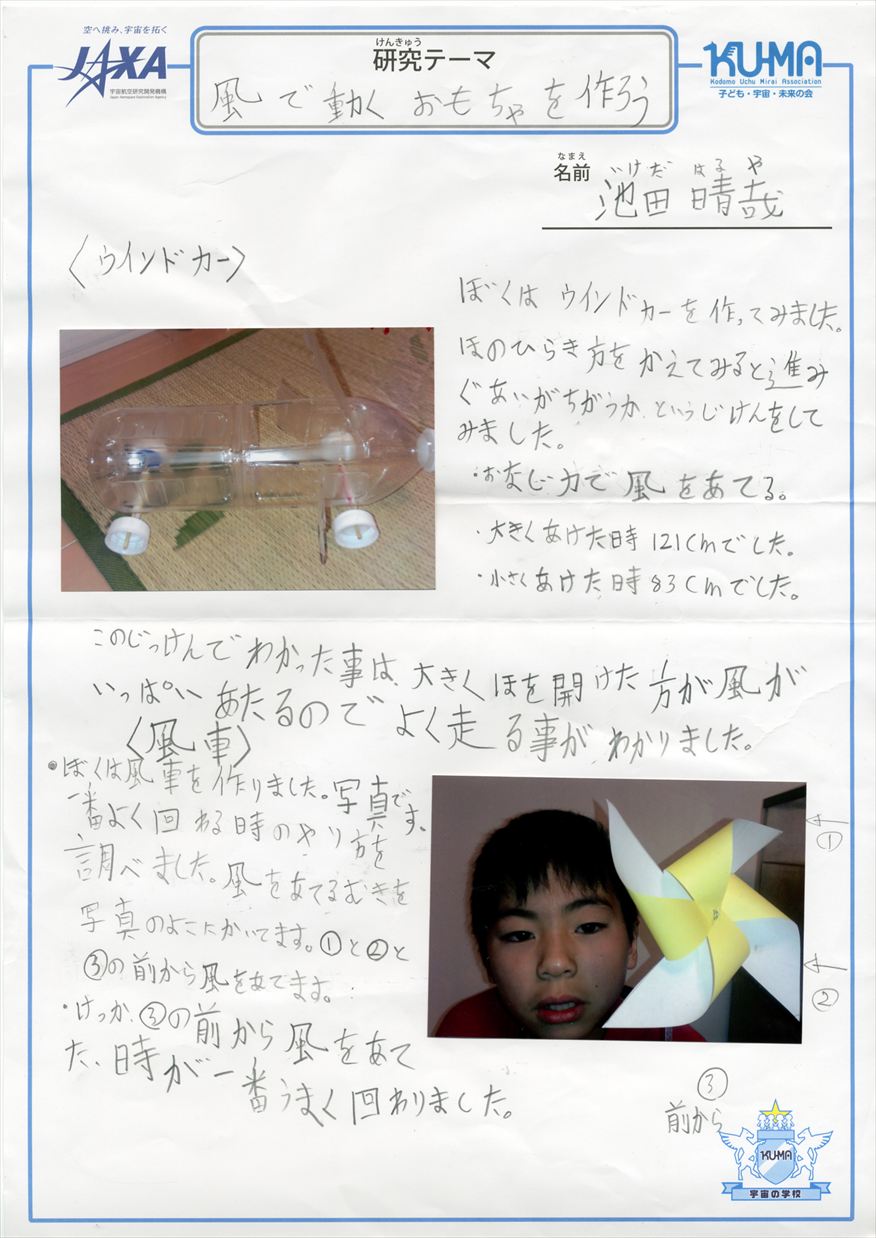 空へ挑み、宇宙を拓く
JAXA
宇宙航空研究開発機構
Japan Aerospace Exploration Agency
けんきゅう
研究テーマ
風で動くおもちゃを作ろう
KU-MA
Kodomo Uchu Mirai Association
子ども・宇宙・未来の会
なまえ
名前
いけだ はるや
池田 晴哉
〈ウインドカー〉
ぼくはウインドカーを作ってみました。
ほのひらき方をかえてみると進み
ぐあいがちがうか、というじけんをして
みました。
・おなじ力で風をあてる。
・大きくあけた時121cmでした。
・小さくあけた時83cmでした。
このじっけんでわかった事は、大きくほを開けた方が風が
いっぱいあたるのでよく走る事がわかりました。
〈風車〉
●ぼくは風車を作りました。写真です。
一番よく回わる時のやり方を
調べました。風をあてるむきを
写真のよこにかいてます。①と②と
③の前から風をあてます。
・けっか、③の前から風をあて
た、時が一番うまく回わりました。
①
②
③
前から
KU-MA
宇宙の学校